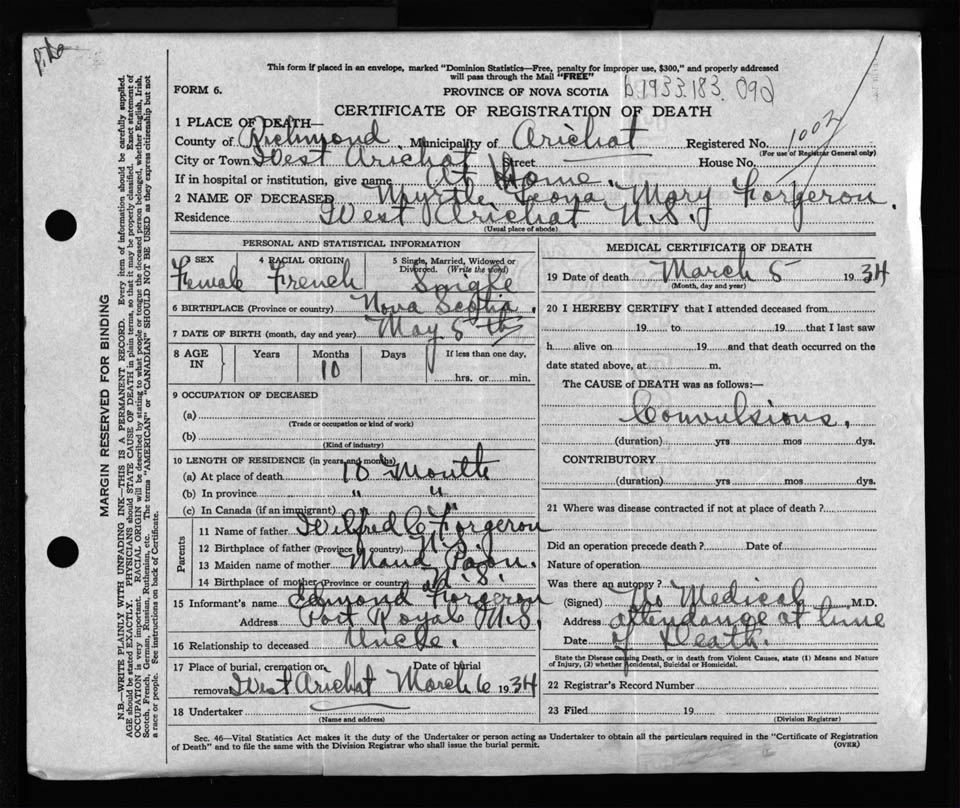 P.T.O
This form if placed in an envelope, marked "Dominion Statistics—Free, penalty for improper use, $300," and properly addressed
will pass through the Mail "FREE"
FORM 6.
PROVINCE OF NOVA SCOTIA b.1933.183.092
CERTIFICATE OF REGISTRATION OF DEATH
1 PLACE OF DEATH—
County of Richmond Municipality of Arichat Registered No. 1002
(For use of Registrar General only)
City or Town West Arichat Street House No.
If in hospital or institution, give name At Home.
2 NAME OF DECEASED Myrtle Leona Mary Forgeron.
Residence West Arichat N.S.
(Usual place of abode)
PERSONAL AND STATISTICAL INFORMATION
3 SEX 4 RACIAL ORIGIN 5 Single, Married, Widowed or
Divorced. (Write the word)
Female French Single
6 BIRTHPLACE (Province or country) Nova Scotia.
7 DATE OF BIRTH (month, day and year) May 5th
8 AGE IN Years Months Days If less than one day,
10
hrs. or min.
9 OCCUPATION OF DECEASED
(a)
(Trade or occupation or kind of work)
(b)
(Kind of industry)
10 LENGTH OF RESIDENCE (in years and months)
(a) At place of death 10 Months
(b) In province " "
(c) In Canada (if an immigrant)
Parents
11 Name of father Wilfred C Forgeron
12 Birthplace of father (Province or country) N.S.
13 Maiden name of mother Maud Paon.
14 Birthplace of mother (Province or country) N.S.
15 Informant's name Edmond Forgeron
Address Port Royal N.S.
16 Relationship to deceased Uncle.
17 Place of burial, cremation or Date of burial
removal West Arichat March 6 1934
18 Undertaker
(Name and address)
MEDICAL CERTIFICATE OF DEATH
19 Date of death March 5 1934
(Month, day and year)
20 I HEREBY CERTIFY that I attended deceased from
19 to 19 that I last saw
h alive on 19 and that death occurred on the
date stated above, at m.
The CAUSE of DEATH was as follows:—
Convulsions.
(duration) yrs mos dys.
CONTRIBUTORY
(duration) yrs mos dys.
21 Where was disease contracted if not at place of death?
Did an operation precede death? Date of
Nature of operation
Was there an autopsy?
(Signed) No Medical M.D.
Address attendance at time
Date of Death.
State the Disease causing Death, or in death from Violent Causes, state (1) Means and Nature
of Injury, (2) whether Accidental, Suicidal or Homicidal.
22 Registrar's Record Number
23 Filed 19
(Division Registrar)
Sec. 46—Vital Statistics Act makes it the duty of the Undertaker or person acting as Undertaker to obtain all the particulars required in the "Certificate of Registration
of Death" and to file the same with the Division Registrar who shall issue the burial permit. (OVER)
MARGIN RESERVED FOR BINDING
N.B.—WRITE PLAINLY WITH UNFADING INK—THIS IS A PERMANENT RECORD. Every item of information should be carefully supplied.
AGE should be stated EXACTLY. PHYSICIANS should STATE CAUSE OF DEATH in plain terms, so that it may be properly classified. Exact statement of
OCCUPATION is very important. RACIAL ORIGIN will be described by stating to what people or tongue the deceased person belonged, whether English, Irish,
Scotch, French, German, Russian, Ruthenian, etc. The terms "AMERICAN" or "CANADIAN" SHOULD NOT BE USED as they express citizenship but not
a race or people. See instructions on back of Certificate.